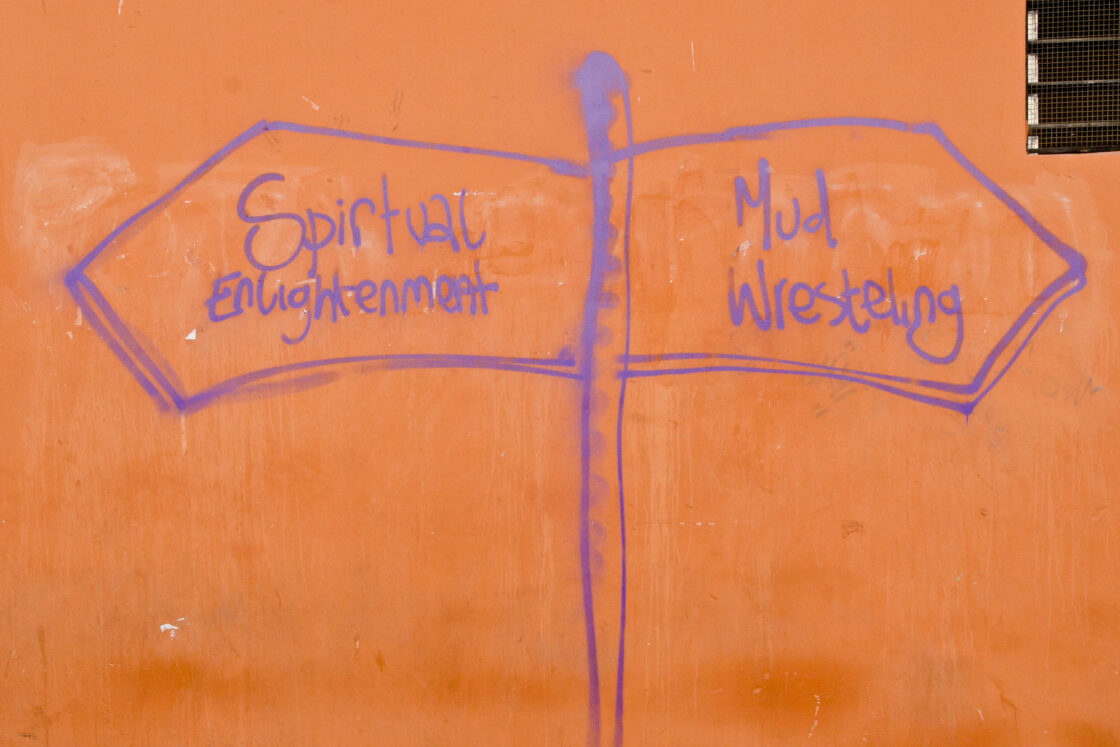 Spirtual
Enlightenment
Mud
Wresteling